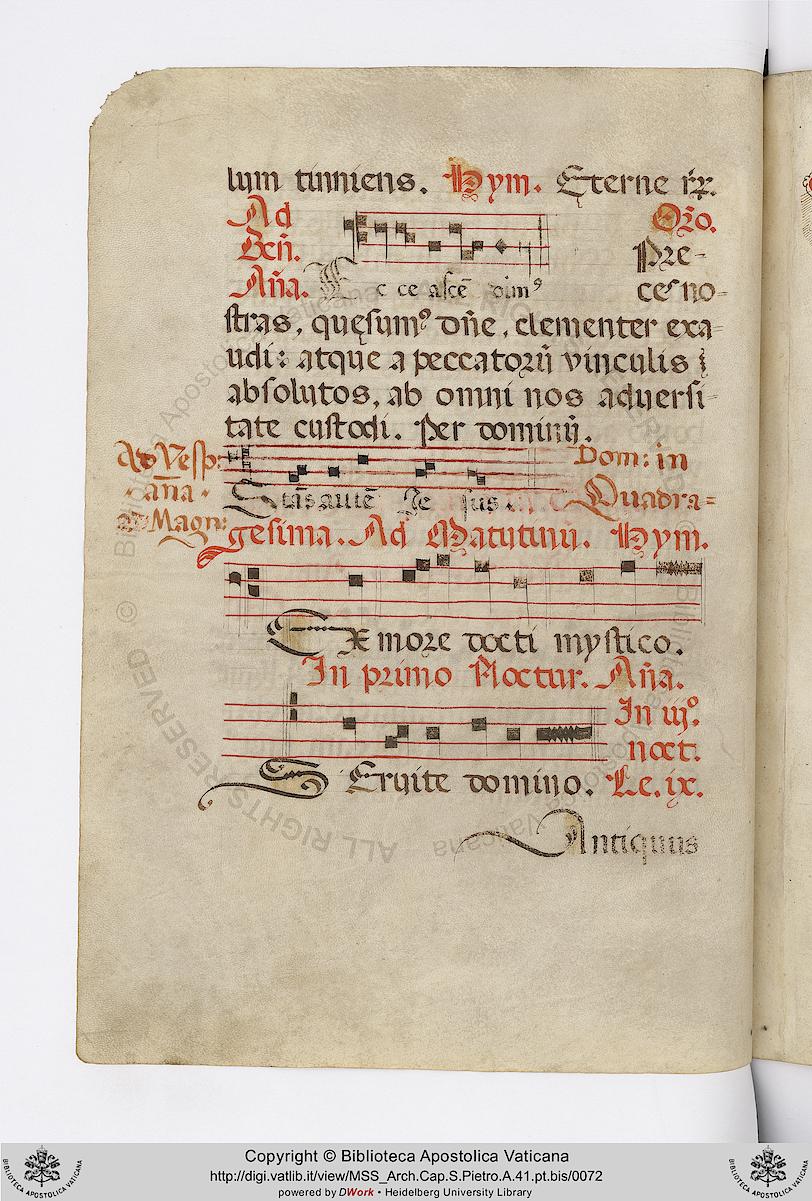 lum tinniens. Hym. Eterne rx.
Ad Oro.
Ben̄. Pre-
An̄a. Ecce ascē dim⁹ ces no-
stras, quęsum⁹ dn̄e, clementer exa-
udi: atque a peccatorū vinculis
absolutos, ab omni nos adversi-
tate custodi. Per dominū.
Ad Vesp. Dom: in
an̄a. Stās autē Je sus. Quadra-
ad Magn: gesima. Ad Matutinū. Hym.
Ex more docti mystico.
In primo Noctur. An̄a.
In iijº.
noct:
Servite domino. Le. ix.
Antiquus
© Biblioteca Apostolica Vaticana
ALL RIGHTS RESERVED
Copyright © Biblioteca Apostolica Vaticana
http://digi.vatlib.it/view/MSS_Arch.Cap.S.Pietro.A.41.pt.bis/0072
powered by DWork • Heidelberg University Library
BIBLIOTECA APOSTOLICA VATICANA
BIBLIOTECA APOSTOLICA VATICANA